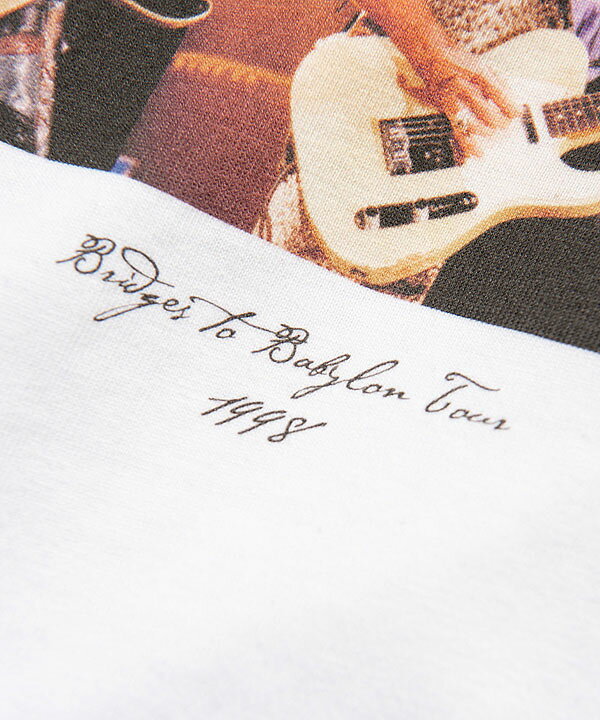 Bridges to Babylon Tour
1998